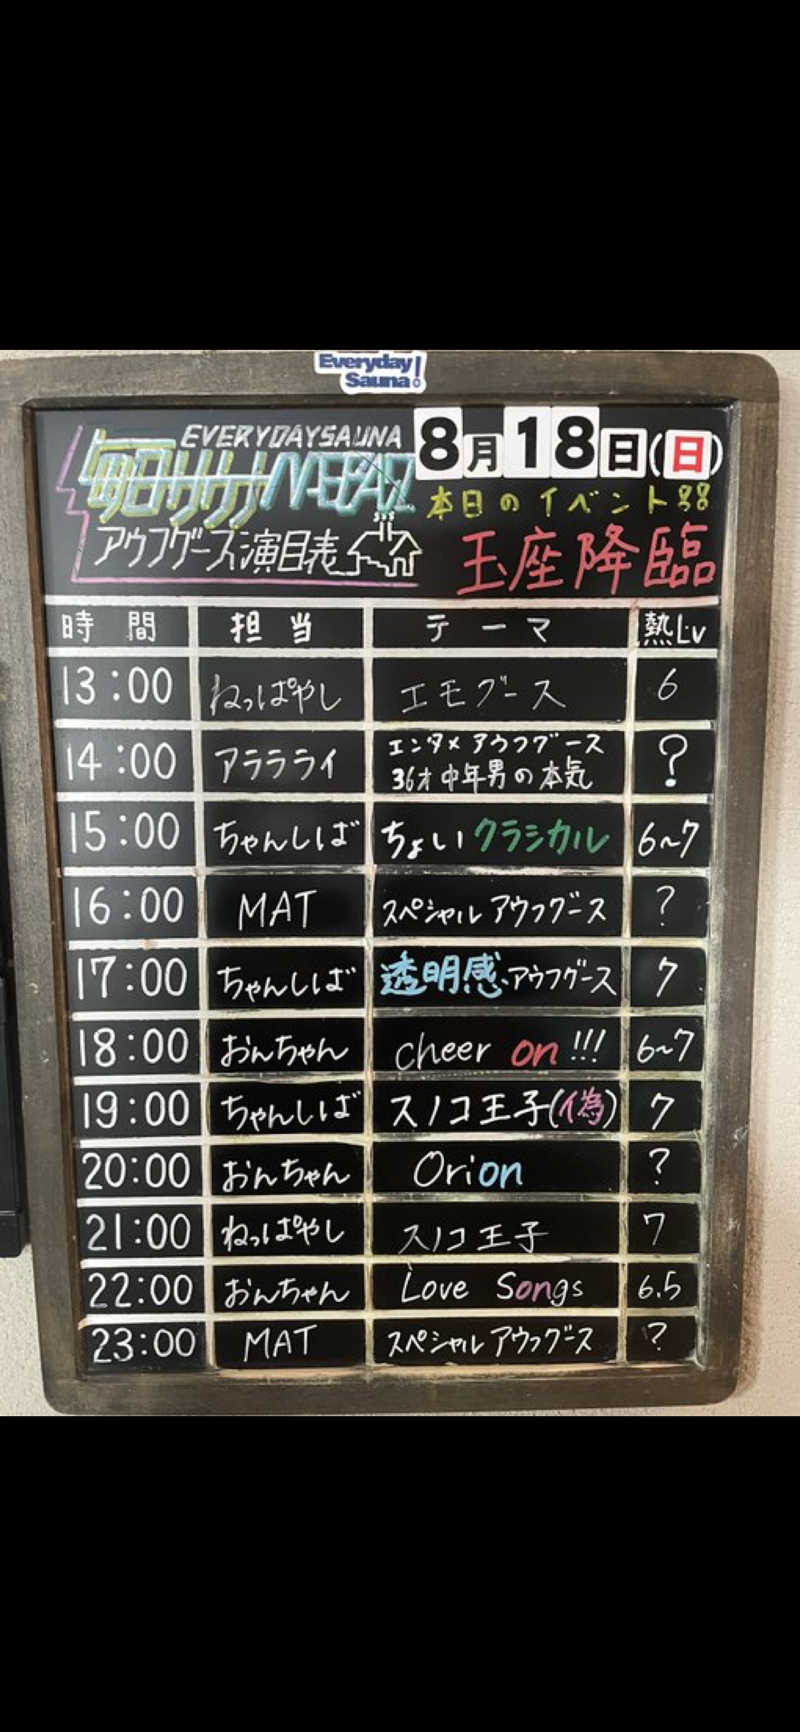 Everyday
Sauna!
EVERYDAYSAUNA
毎日サウナ MAEBASHI
アウフグース演目表
8月18日(日)
本日のイベント
玉座降臨
時間 担当 テーマ 熱Lv
13:00 ねっぱやし エモグース 6
14:00 アラララライ エンタメアウフグース ?
36才中年男の本気
15:00 ちゃんしば ちょいクラシカル 6~7
16:00 MAT スペシャルアウフグース ?
17:00 ちゃんしば 透明感アウフグース 7
18:00 おんちゃん cheer on!!! 6~7
19:00 ちゃんしば スノコ王子(偽) 7
20:00 おんちゃん Orion ?
21:00 ねっぱやし スノコ王子 7
22:00 おんちゃん Love Songs 6.5
23:00 MAT スペシャルアウフグース ?